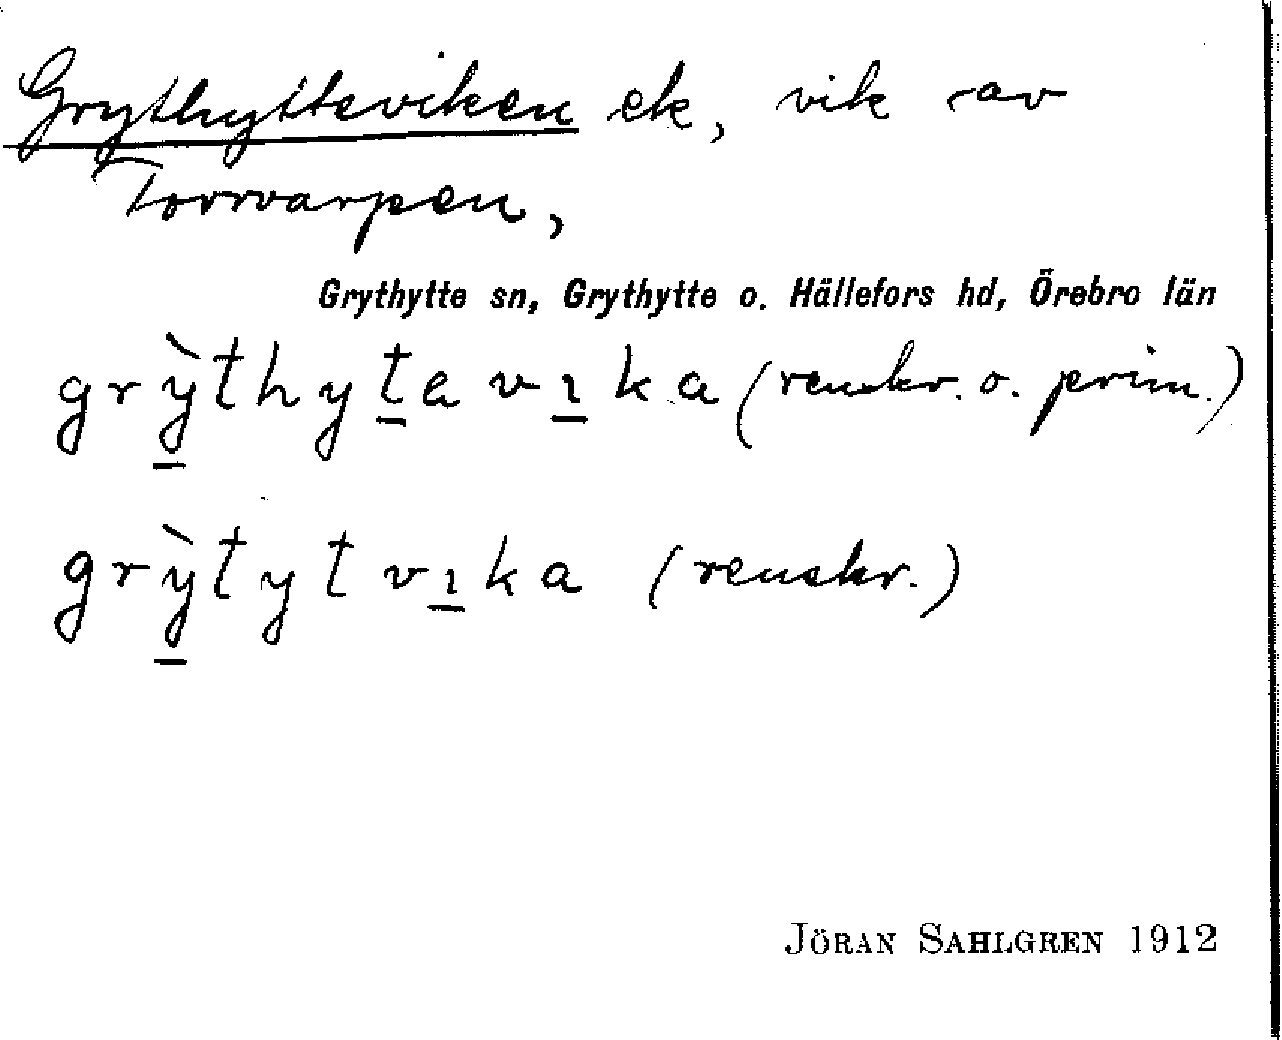 Grythytteviken ek, vik av
Torrvarpen,
Grythytte sn, Grythytte o. Hällefors hd, Örebro län
grỳ̠thyt̠a vı̠ka (renskr. o. prim.)
grỳ̠tytvı̠ka (renskr.)
JÖRAN SAHLGREN 1912